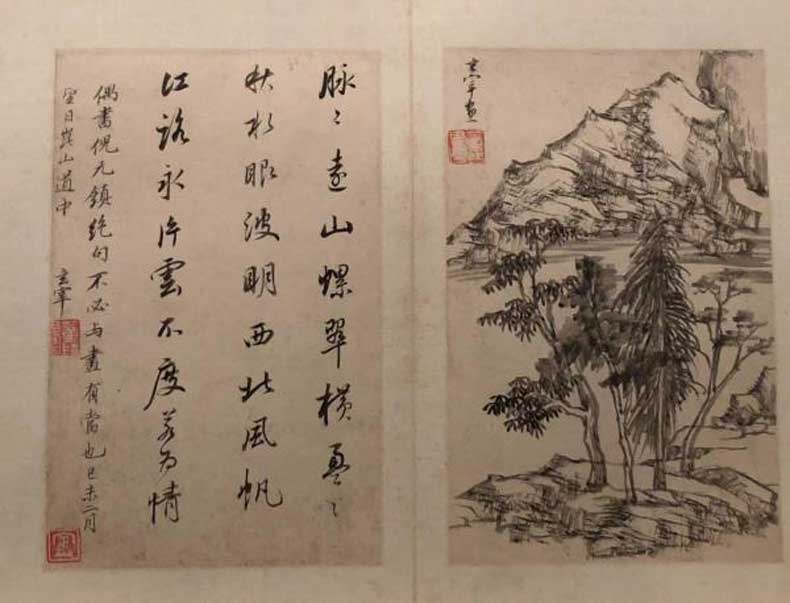 玄宰画
脉〻遠山螺翠横盈〻
秋水眼波明西北風帆
江路永片雲不度若为情
偶書倪元鎮絶句不必与畫有當也己未二月
望日崑山道中
玄宰